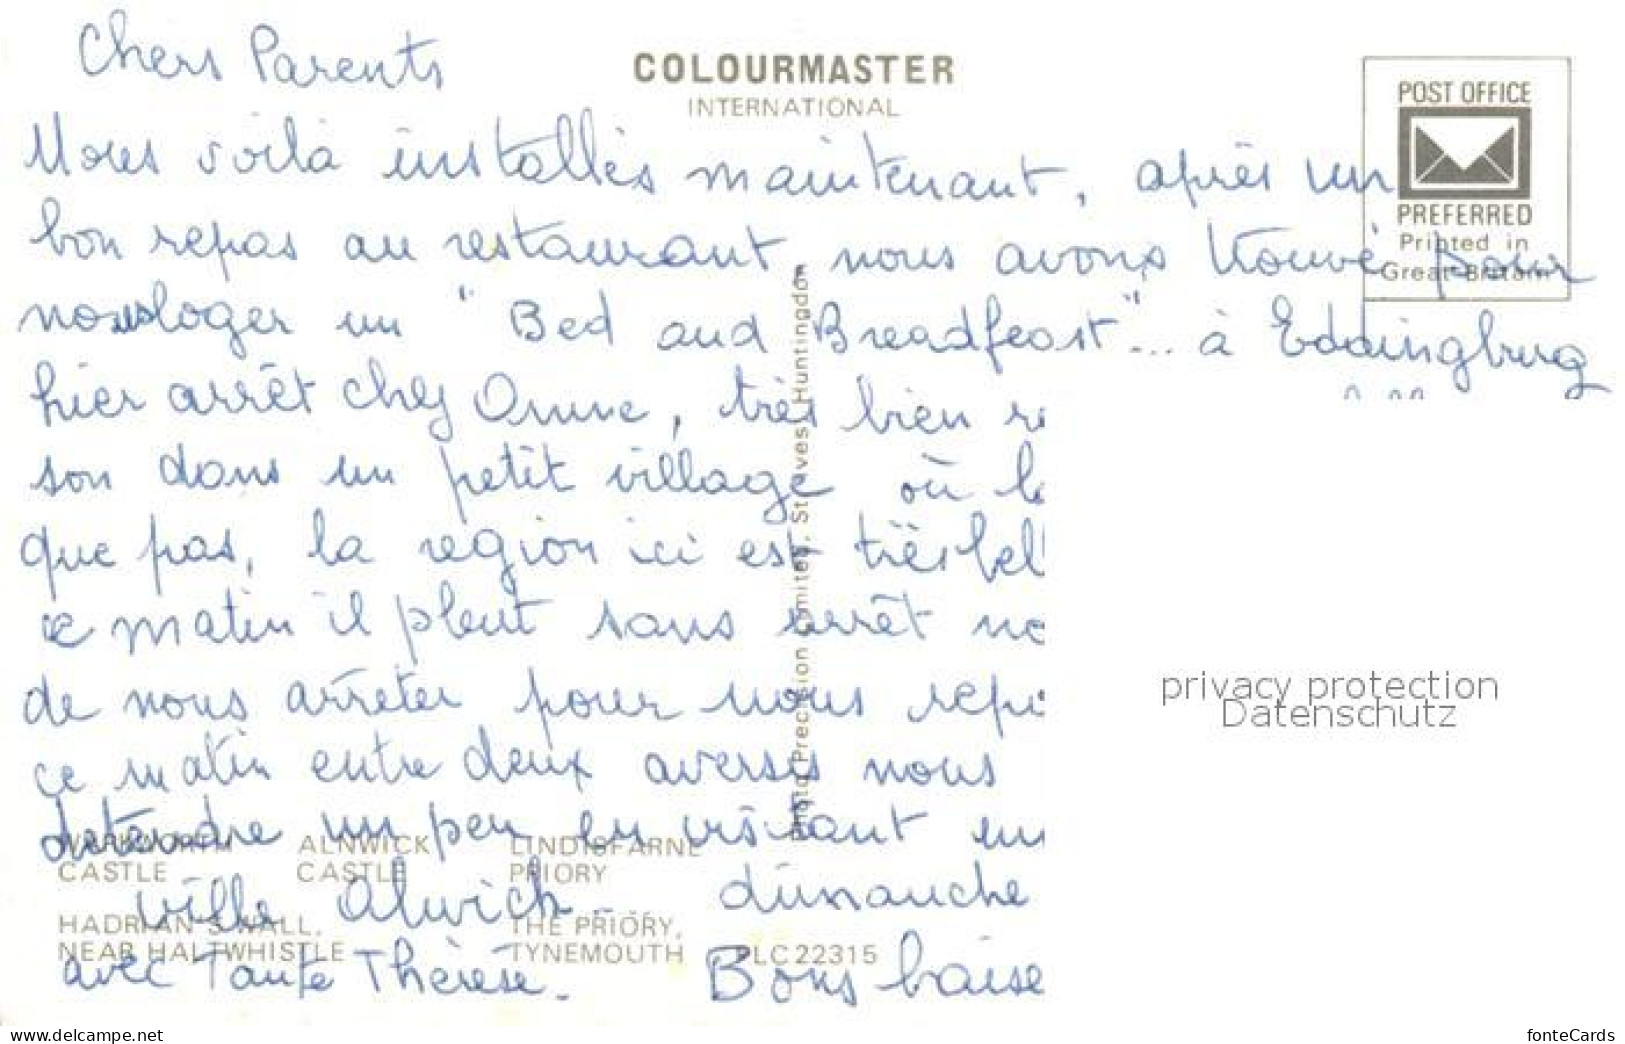 Chers Parents
COLOURMASTER
INTERNATIONAL
POST OFFICE
PREFERRED
Printed in
Great Britain
Nous voilà installés maintenant, après un
bon repas au restaurant nous avons trouvé pour
nous loger un "Bed and Breadfeast"... à Eddingbrug
hier arrêt chez Anne, très bien
son dans un petit village où
que pas, la région ici est très bel
ce matin il pleut sans arrêt
de nous arrêter pour nous
ce matin entre deux averses nous
détendre un peu en visitant
ville Alwich dimanche
avec Tante Thérèse. Bons baise
Photo Precision Limited, St. Ives, Huntingdon
WARKWORTH
CASTLE
ALNWICK
CASTLE
LINDISFARNE
PRIORY
HADRIAN'S WALL,
NEAR HALTWHISTLE
THE PRIORY,
TYNEMOUTH
PLC22315
privacy protection
Datenschutz
www.delcampe.net
fonteCards